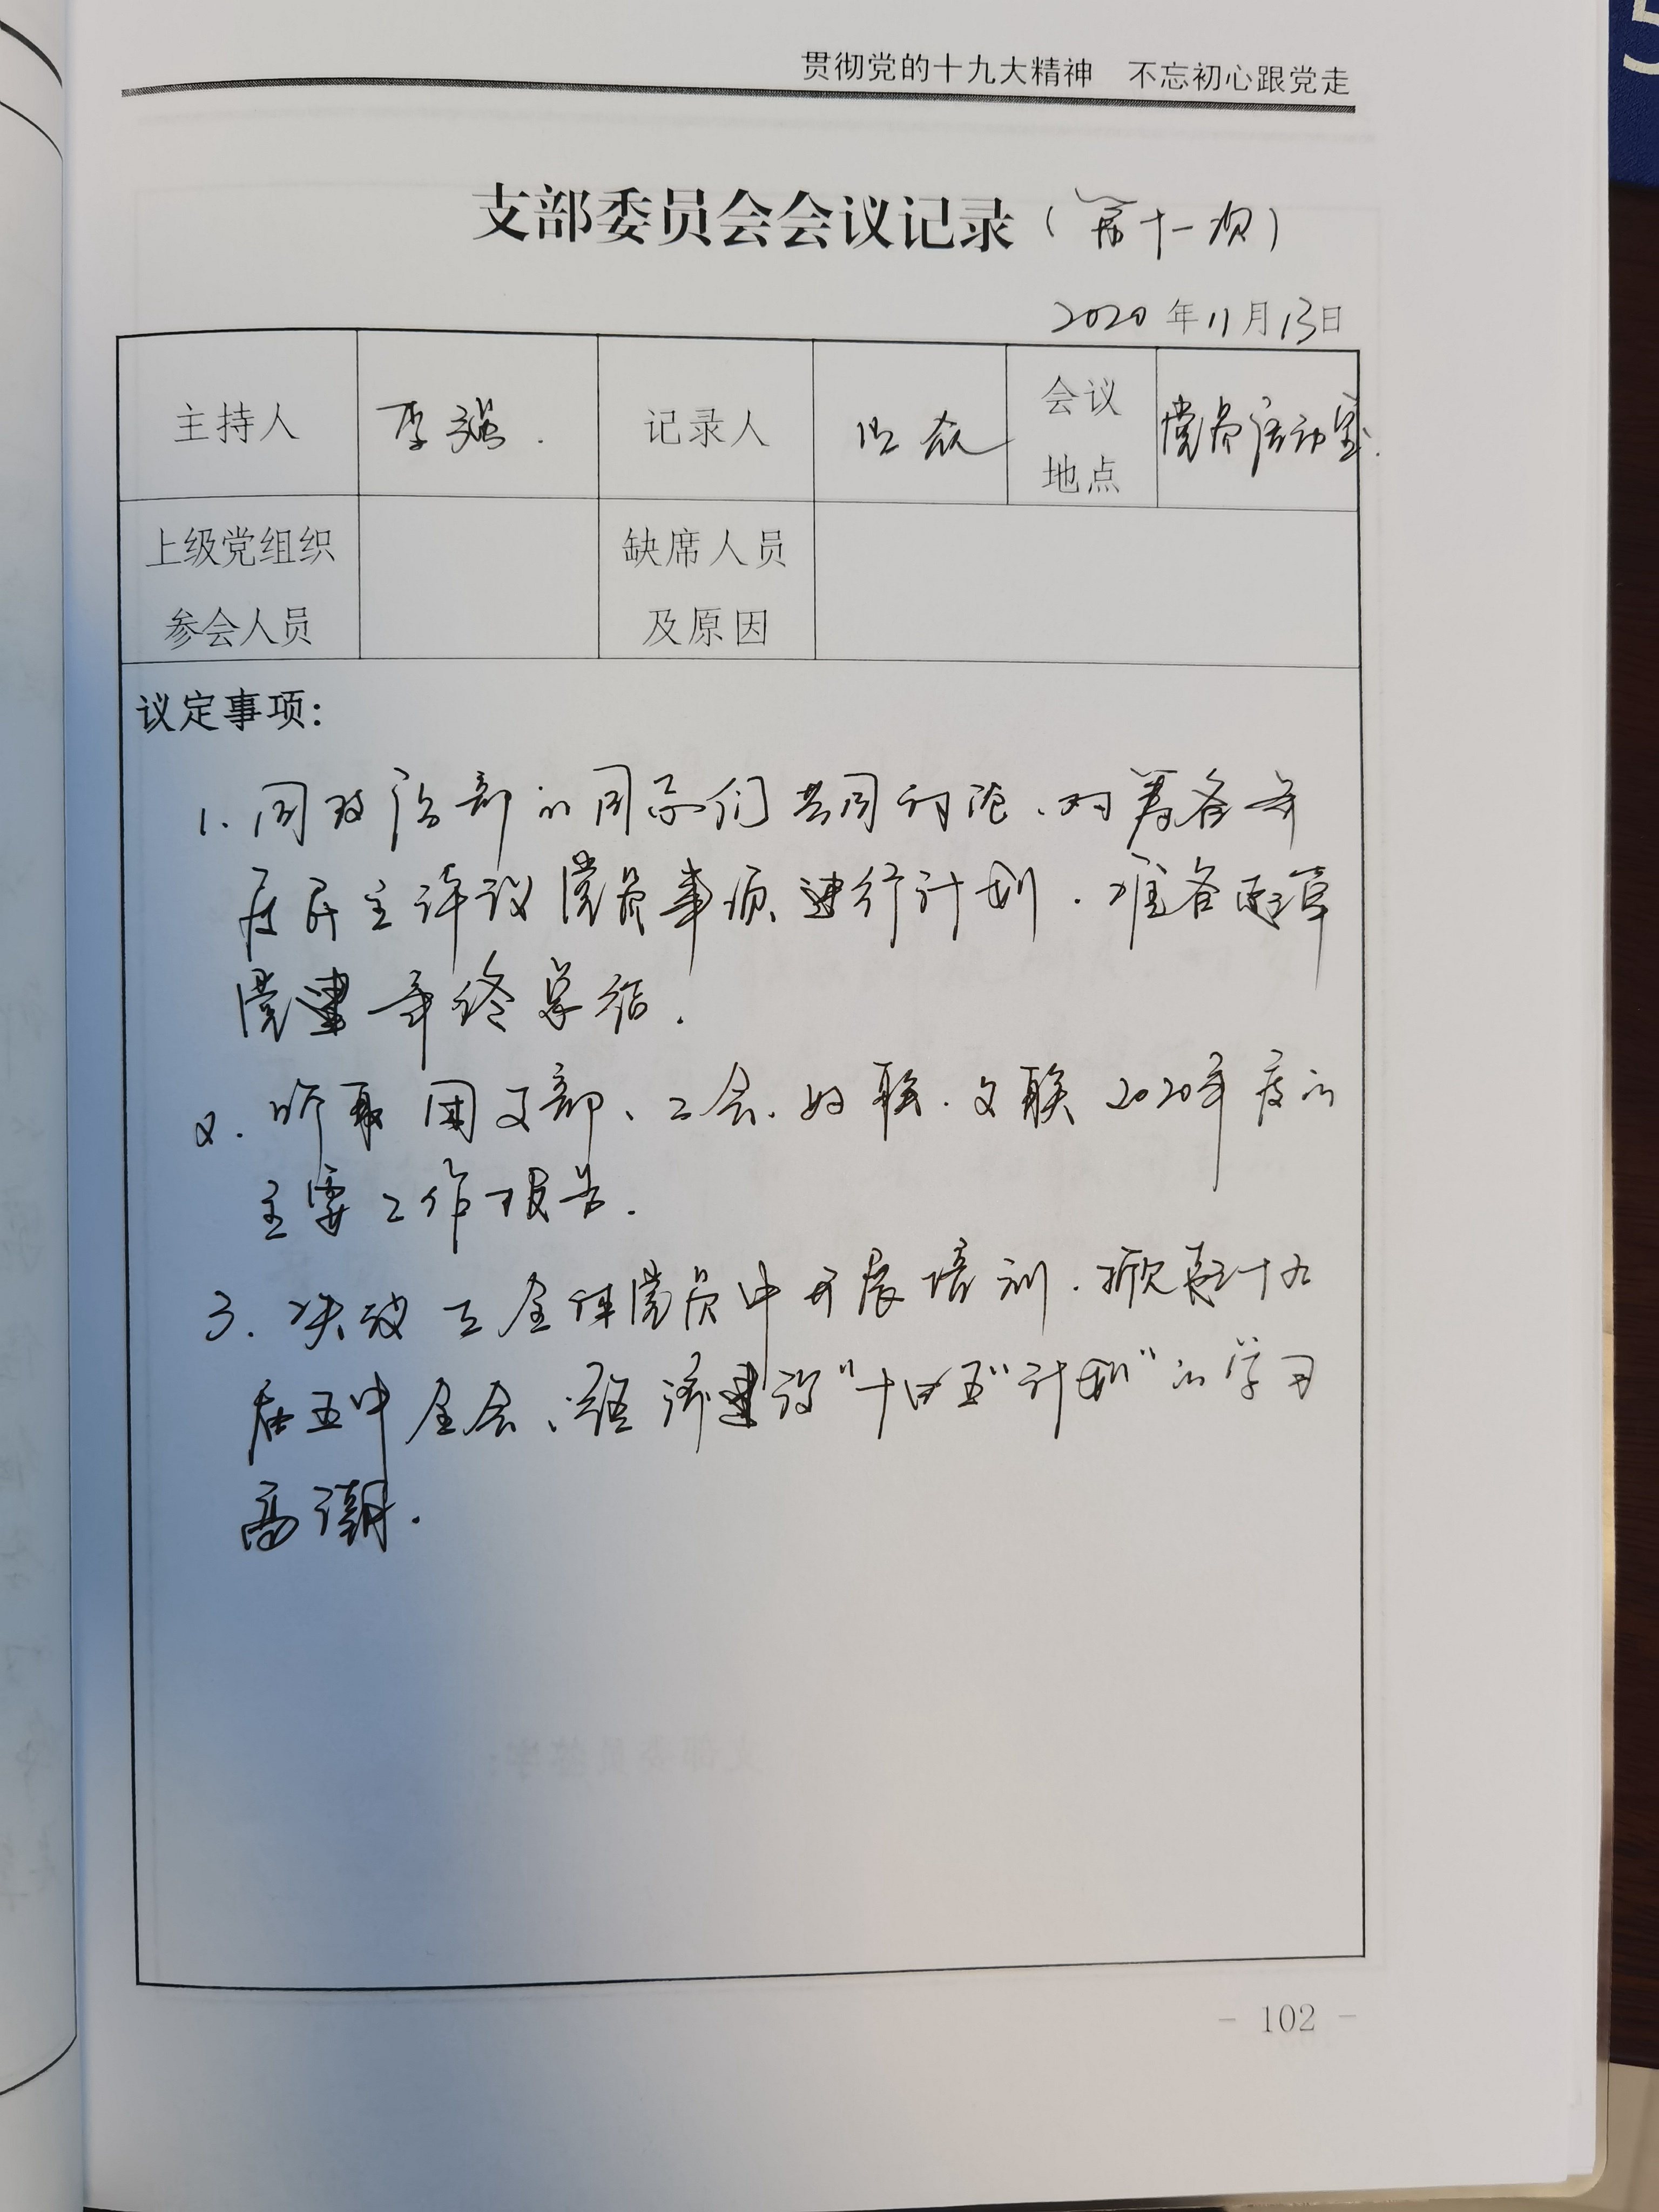 贯彻党的十九大精神 不忘初心跟党走
支部委员会会议记录（第十一次）
2020年11月13日
主持人 李强. 记录人 会议地点 党员活动室.
上级党组织参会人员 缺席人员及原因
议定事项：
1. 同政治部的同志们共同讨论、对筹备年
度民主评议党员事项进行计划. 准备起草
党建年终总结.
2. 听取团支部、工会、妇联、文联2020年度的
主要工作报告.
3. 决议在全体党员中开展培训. 掀起十九
届五中全会、经济建设"十四五"计划"的学习
高潮.
- 102 -